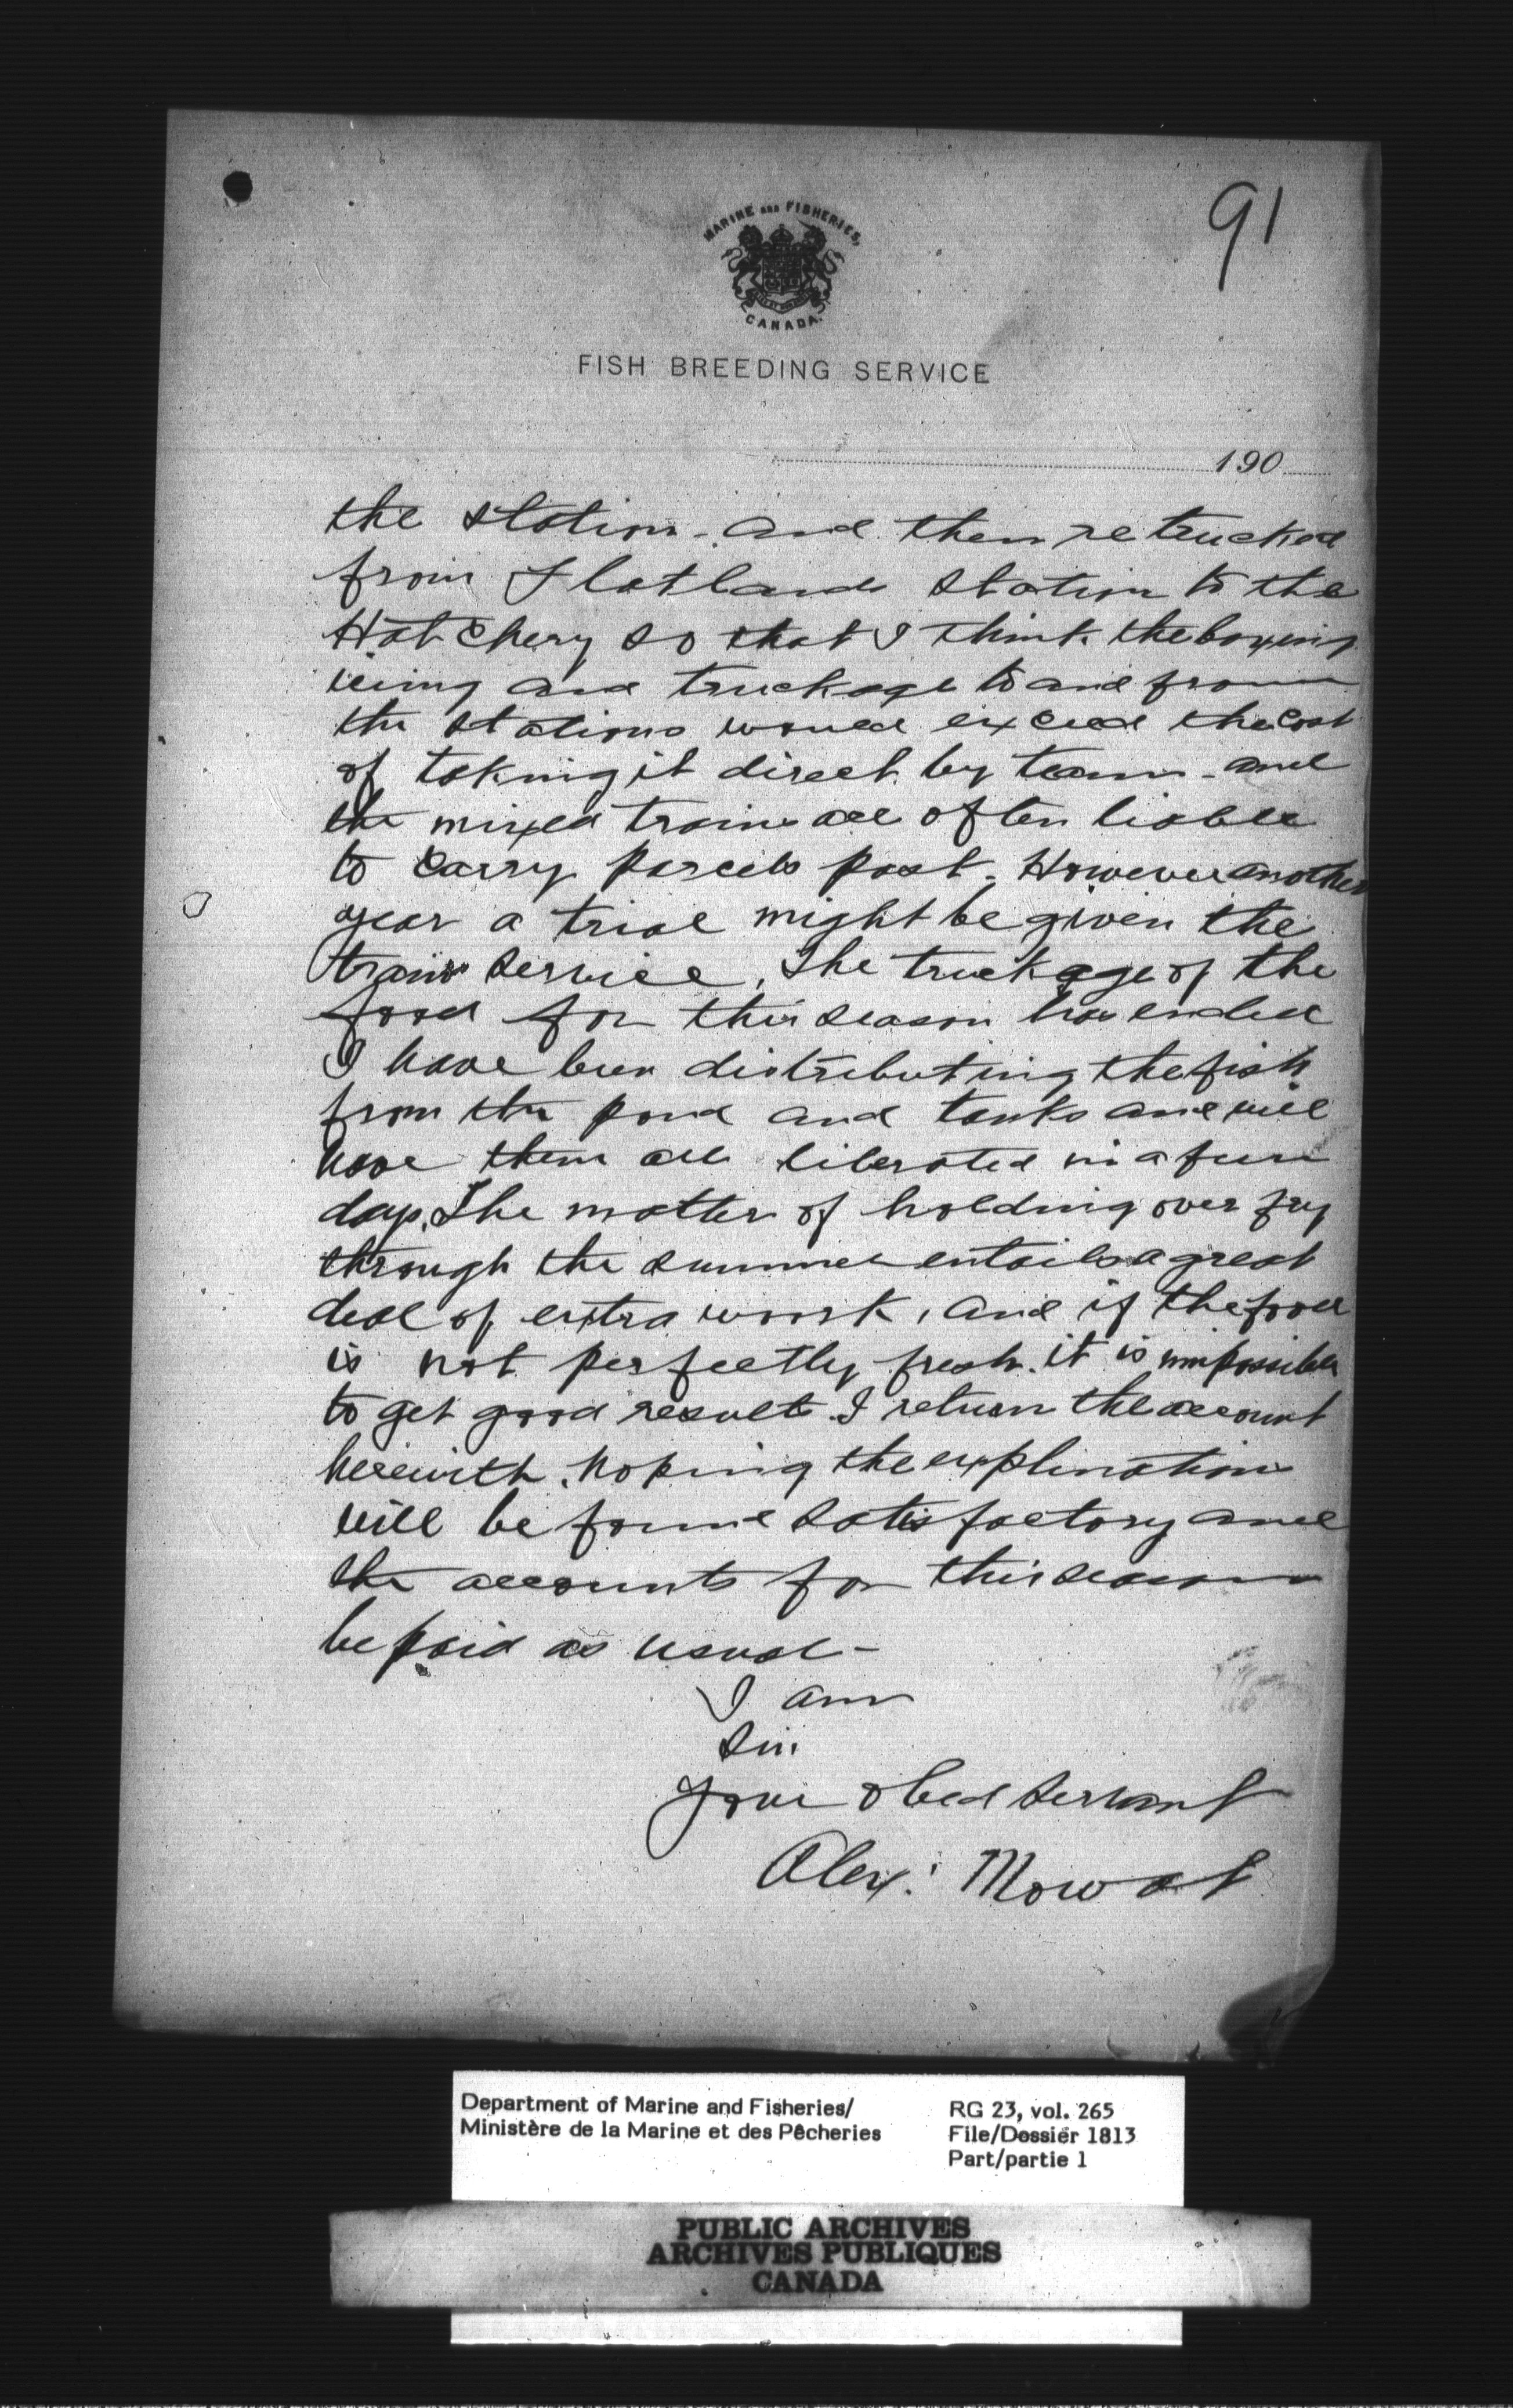 91
MARINE AND FISHERIES,
CANADA.
FISH BREEDING SERVICE
190
the station - and then re trucked
from Flatlands Station to the
Hatchery so that I think the boxing
icing and truckage to and from
the stations would exceed the cost
of taking it direct by team - and
the mixed trains are often liable
to carry parcels past. However another
year a trial might be given the
train service. The truckage of the
food for this season has ended
I have been distributing the fish
from the pond and tanks and will
have them all liberated in a few
days. The matter of holding over fry
through the summer entails a great
deal of extra work, and if the food
is not perfectly fresh. it is impossible
to get good results. I return the account
herewith. hoping the explination
will be found satisfactory and
the accounts for this season
be paid as usual -
I am
Sir
Your obed servant
Alex: Mowat
Department of Marine and Fisheries/
Ministère de la Marine et des Pêcheries
RG 23, vol. 265
File/Dossier 1813
Part/partie 1
PUBLIC ARCHIVES
ARCHIVES PUBLIQUES
CANADA